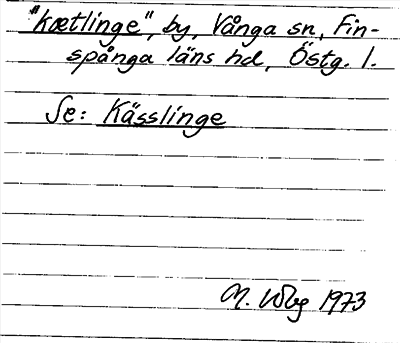 "kætlinge", by, Vånga sn, Fin-
spånga läns hd, Östg. l.
Se: Kässlinge
M. Wbg 1973